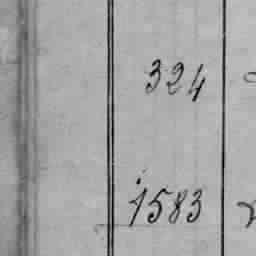 324
1583